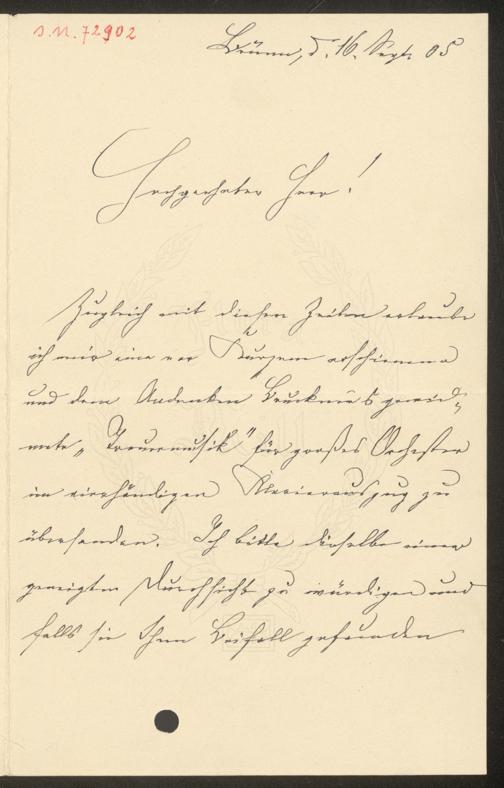 I.N. 72902
Brünn, d. 16. Sept. 05
Hochgeehrter Herr!
Zugleich mit diesen Zeilen erlaube
ich mir eine vor Kurzem erschienene
und dem Andenken Bruckner's gewid-
mete „Trauermusik" für großes Orchester
im vierhändigen Klavierauszug zu
übersenden. Ich bitte dieselbe einer
geneigten Durchsicht zu würdigen und
falls sie Ihren Beifall gefunden